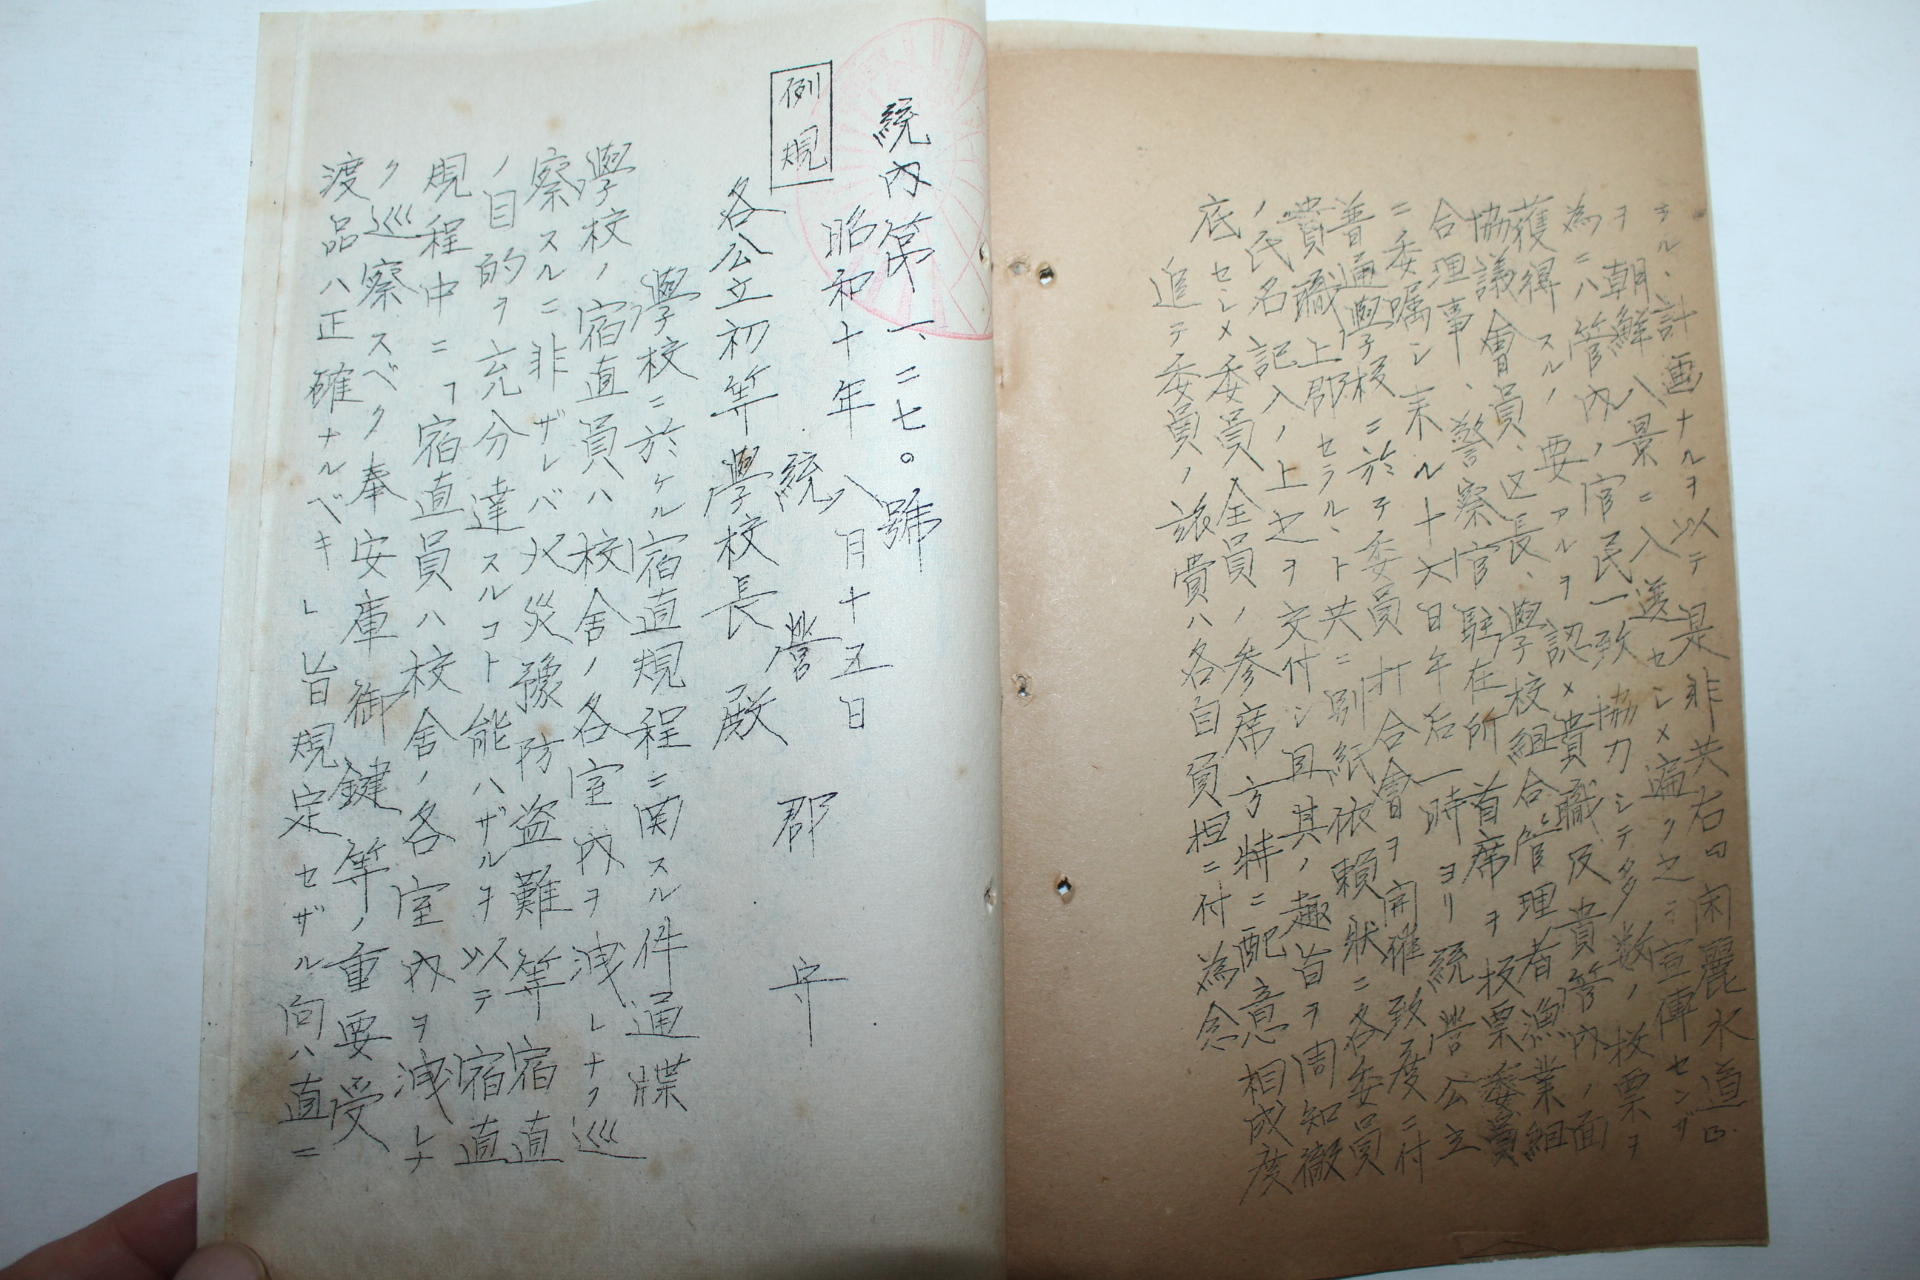 ヲル、計画ナルヲ以テ是非共右ノ閑麗水道ヲ
朝鮮八景ニ入選セシメ遍ク之ヲ宣傳センガ
為ニハ管内ノ官民一致協力シテ多数ノ投票ヲ
獲得スルノ要アルヲ認メ貴職及貴管内ノ面
協議會員、区長、學校組合管理者漁業組
合理事、警察官駐在所首席ヲ投票委員
ニ委嘱シ来ル十六日午后一時ヨリ統營公立
普通學校ニ於テ委員打合會ヲ開催致度ニ付
貴職上郡セラルヽト共ニ別紙依賴狀ニ各委員
ノ氏名記入ノ上之ヲ交付シ且其ノ趣旨ヲ周知徹
底セシメ委員全員ノ参席方特ニ配意相成度
追テ委員ノ旅費ハ各自負担ニ付為念
統內第一、二七〇號
昭和十年八月十五日
例規
統營郡守
各公立初等學校長殿
學校ニ於ケル宿直規程ニ関スル件通牒
學校ノ宿直員ハ校舎ノ各室內ヲ洩レナク巡
察スルニ非ザレバ火災豫防盗難等宿直
ノ目的ヲ充分達スルコト能ハザルヲ以テ宿直
規程中ニ「宿直員ハ校舎ノ各室內ヲ洩レナ
ク巡察スベク奉安庫御鍵等ノ重要受
渡品ハ正確ナルベキ」旨規定セザル向ハ直ニ